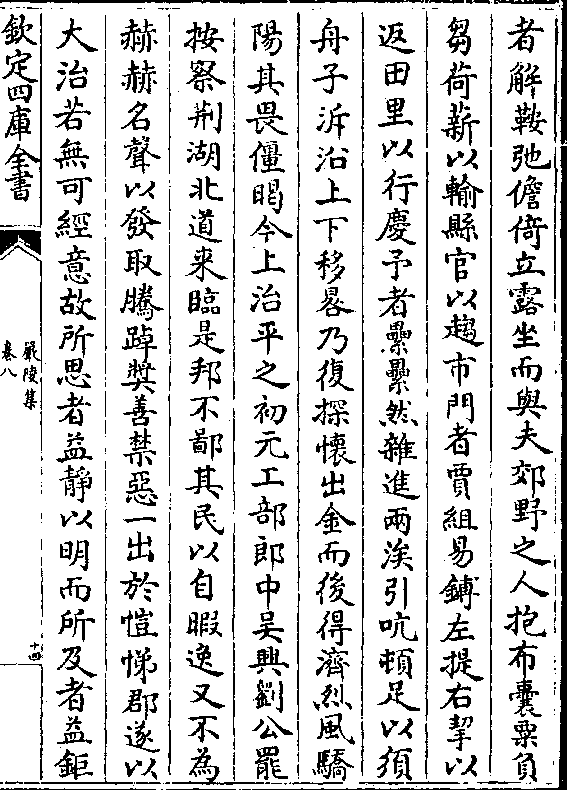 者解鞍弛儋倚立露坐而與夫郊野之人抱布囊粟負
芻荷薪以輸縣官以趨市門者賈組易鎛左提右挈以
返田里以行慶予者纍纍然雜進兩涘引吭頓足以須
舟子泝沿上下移晷乃復探懷出金而後得濟烈風驕
陽其畏僵暍今上治平之初元工部郎中吴興劉公罷
按察荆湖北道来臨是邦不鄙其民以自暇逸又不為
赫赫名聲以發取騰踔奬善禁惡一出於愷悌郡遂以
大治若無可經意故所思者益静以明而所及者益鉅
欽定四庫全書
嚴陵集
卷八
十四